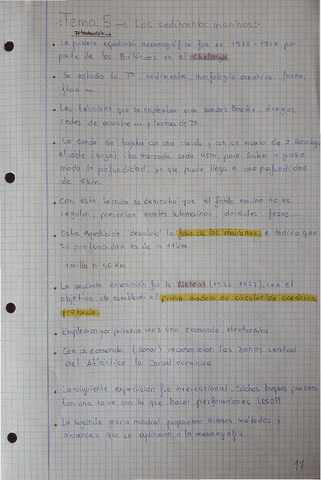 Tema 5 → Los sedimentos marinos:
Introducción:
• La primera expedición oceanográfica fue en 1872-1876 por
parte de los Británicos en el Challenger
• Se estudio la Tª, sedimentos, morfología oceánica, fauna,
flora ...
• Las técnicas que se empleaban eran sondas Brooke, dragas,
redes de arrastre ... y tomas de Tª.
• La sonda se bajaba con una cuerda y con un motor de
el cable (soga) iba marcado cada 45m, para saber
la profundidad, ya que puede llegar a una profundidad
de 6km.
• Con esta técnica se demostró que el fondo marino no es
regular, presentan montes submarinos, dorsales, fosas...
• Esta expedición descubrió la fosa de las Marianas, e indico que
su profundidad es de 11 km
1 milla = 1,6 Km
• La segunda expedición fue la Meteor (1925-1927), con el
objetivo de establecer el primer modelo de circulación oceánica
profunda.
• Emplearon por primera vez una ecosonda electrónica
• Con la ecosonda (sonar) reconocieron las zonas central
del Atlántico la dorsal oceánica
• La siguiente expedición fue internacional. Dichos buques presen-
tan una torre con la que hacer perforaciones (DSDP)
• La segunda guerra mundial proporcionó nuevos métodos y
avances que se aplicaron a la oceanografía
11